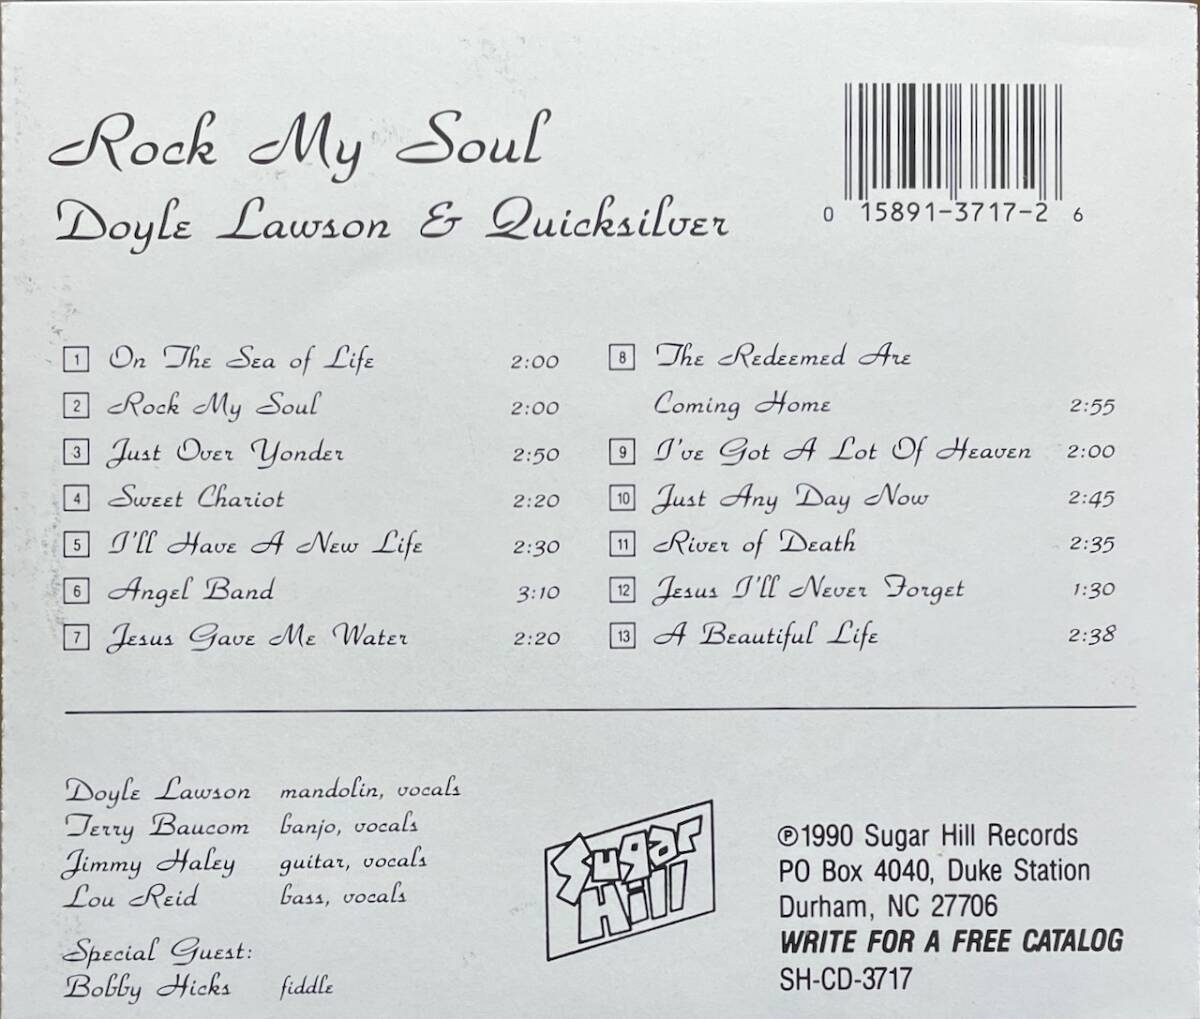 Rock My Soul
Doyle Lawson & Quicksilver
0 15891-3717-2 6
1 On The Sea of Life 2:00
2 Rock My Soul 2:00
3 Just Over Yonder 2:50
4 Sweet Chariot 2:20
5 I'll Have A New Life 2:30
6 Angel Band 3:10
7 Jesus Gave Me Water 2:20
8 The Redeemed Are
Coming Home 2:55
9 I've Got A Lot Of Heaven 2:00
10 Just Any Day Now 2:45
11 River of Death 2:35
12 Jesus I'll Never Forget 1:30
13 A Beautiful Life 2:38
Doyle Lawson mandolin, vocals
Terry Baucom banjo, vocals
Jimmy Haley guitar, vocals
Lou Reid bass, vocals
Special Guest:
Bobby Hicks fiddle
Sugar
Hill
℗1990 Sugar Hill Records
PO Box 4040, Duke Station
Durham, NC 27706
WRITE FOR A FREE CATALOG
SH-CD-3717